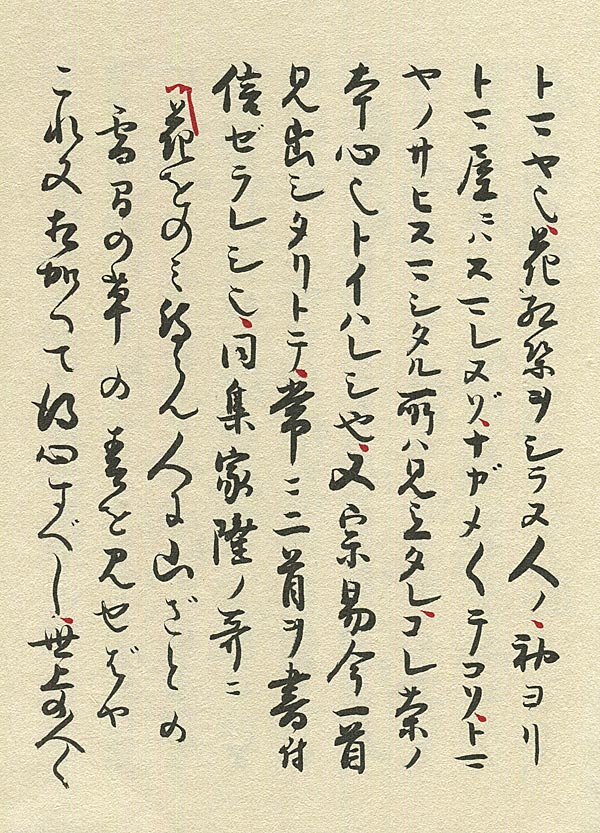 トマヤ也、花紅葉ヲシラヌ人ノ、初ヨリ
トマ屋ニハスマレヌゾ、ナガメ〱テコソ、トマ
ヤノサヒスマシタル所ハ見立タレ、コレ茶ノ
本心也トイハレシ也、又宗易今一首
見出シタリトテ、常ニ二首ヲ書付
信ゼラレシ也、同集家隆ノ哥ニ
花をのミ待らん人に山ざとの
雪間の草の春を見せばや
これ又相加へて得心すべし、世上の人〱